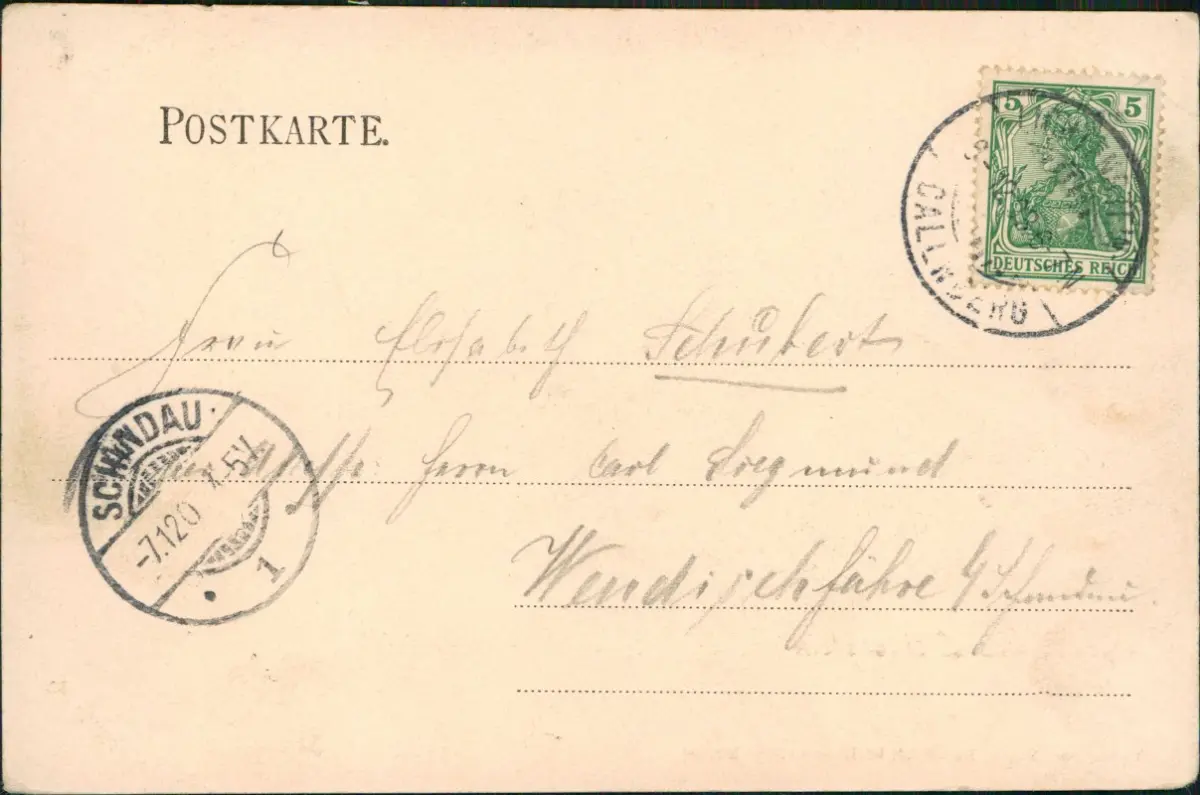 POSTKARTE.
5 5
DEUTSCHES REICH
CALLNBERG
Frau Elisabeth Schubert
SCHANDAU
Herrn Carl Siegmund
-7.12.0
1
Wendischfähre b/ Schandau.